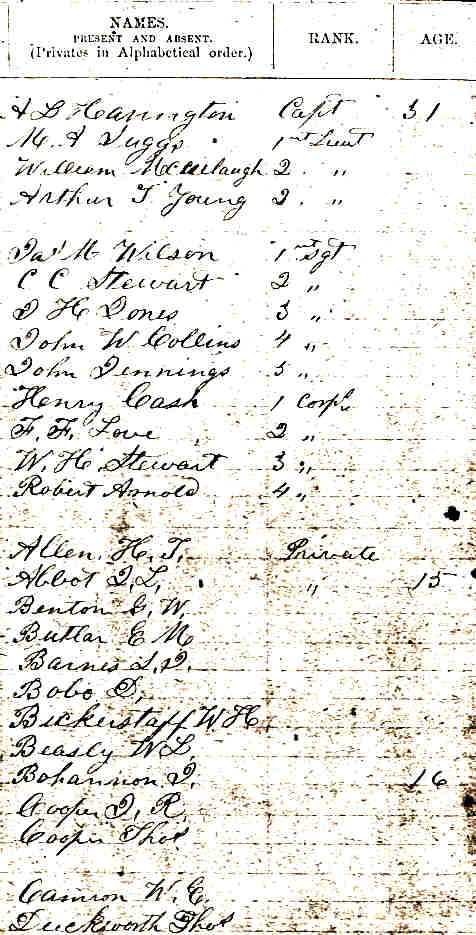 NAMES. RANK. AGE.
PRESENT AND ABSENT.
(Privates in Alphabetical order.)
A L Harrington Capt 31
M. A Tuggs 1st Lieut
William 2 . "
Arthur T Young 2 . "
Jas M Wilson 1st Sgt
C C Stewart 2 "
J H Jones 3 "
John W Collins 4 "
John Jennings 5 "
Henry Cash 1 Corpl
F. F. Love 2 "
W. H. Stewart 3 "
Robert Arnold 4 "
Allen. H. T. Private
Abbot J. L. " 15
Benton G. W.
Butlar E M
Barnes J. D.
Bobo D.
Bickerstaff W H
Beasly W L
Bohannon J. 16
Cooper J. R.
Cooper Thos
Camron W. E.
Duckworth Thos